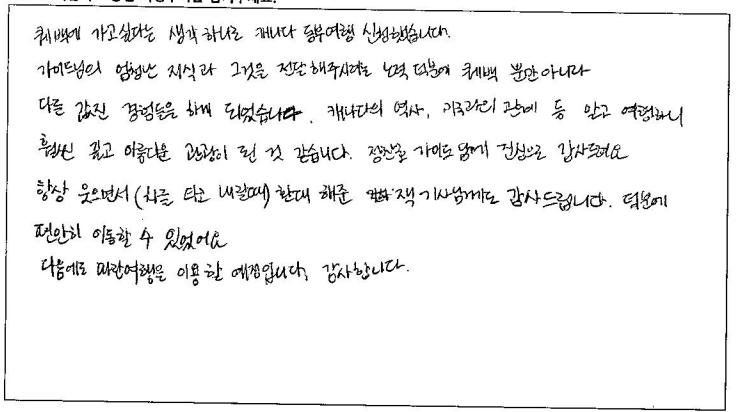 퀘백에 가고싶다는 생각 하나로 캐나다 동부여행 신청했습니다.
가이드님의 엄청난 지식과 그것을 전달해주시려는 노력 덕분에 퀘백 뿐만아니라
다른 값진 경험들을 하게 되었습니다. 캐나다의 역사, 미국과의 관계 등 알고 여행하니
훨씬 깊고 아름다운 관광이 된 것 같습니다. 가이드님께 진심으로 감사드려요
항상 웃으면서 (차를 타고 내릴때) 환대 해준 잭 기사님께도 감사드립니다. 덕분에
편안히 이동할 수 있었어요
다음에도 파란여행을 이용할 예정입니다, 감사합니다.